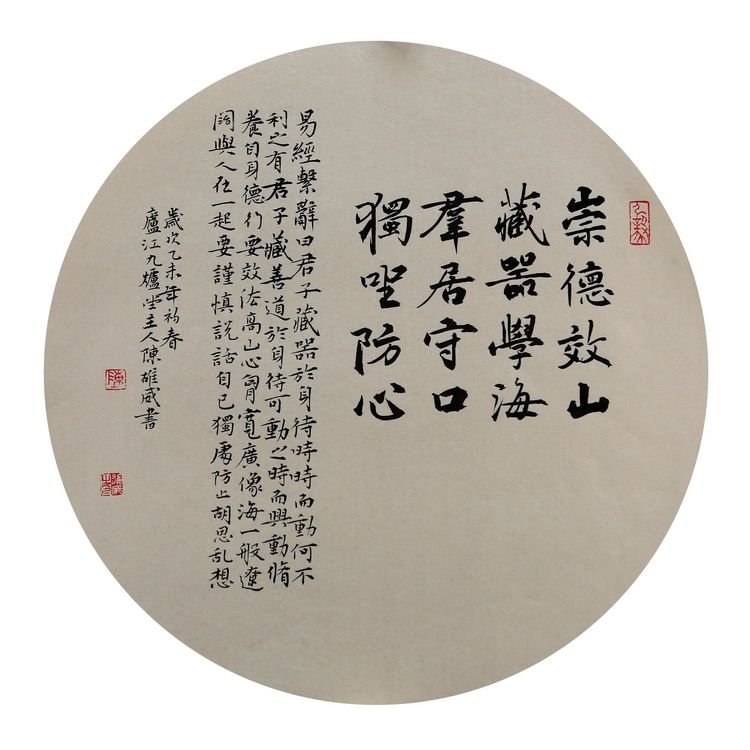 崇德效山
藏器學海
羣居守口
獨坐防心
易經繫辭曰君子藏器於身待時時而動何不
利之有君子藏善道於身待可動之時而興動脩
養自身德行要效法高山心胸寬廣像海一般遼
闊與人在一起要謹慎說話自己獨處防止胡思乱想
歲次乙未年初春
廬江九爐堂主人陳雄威書
陳